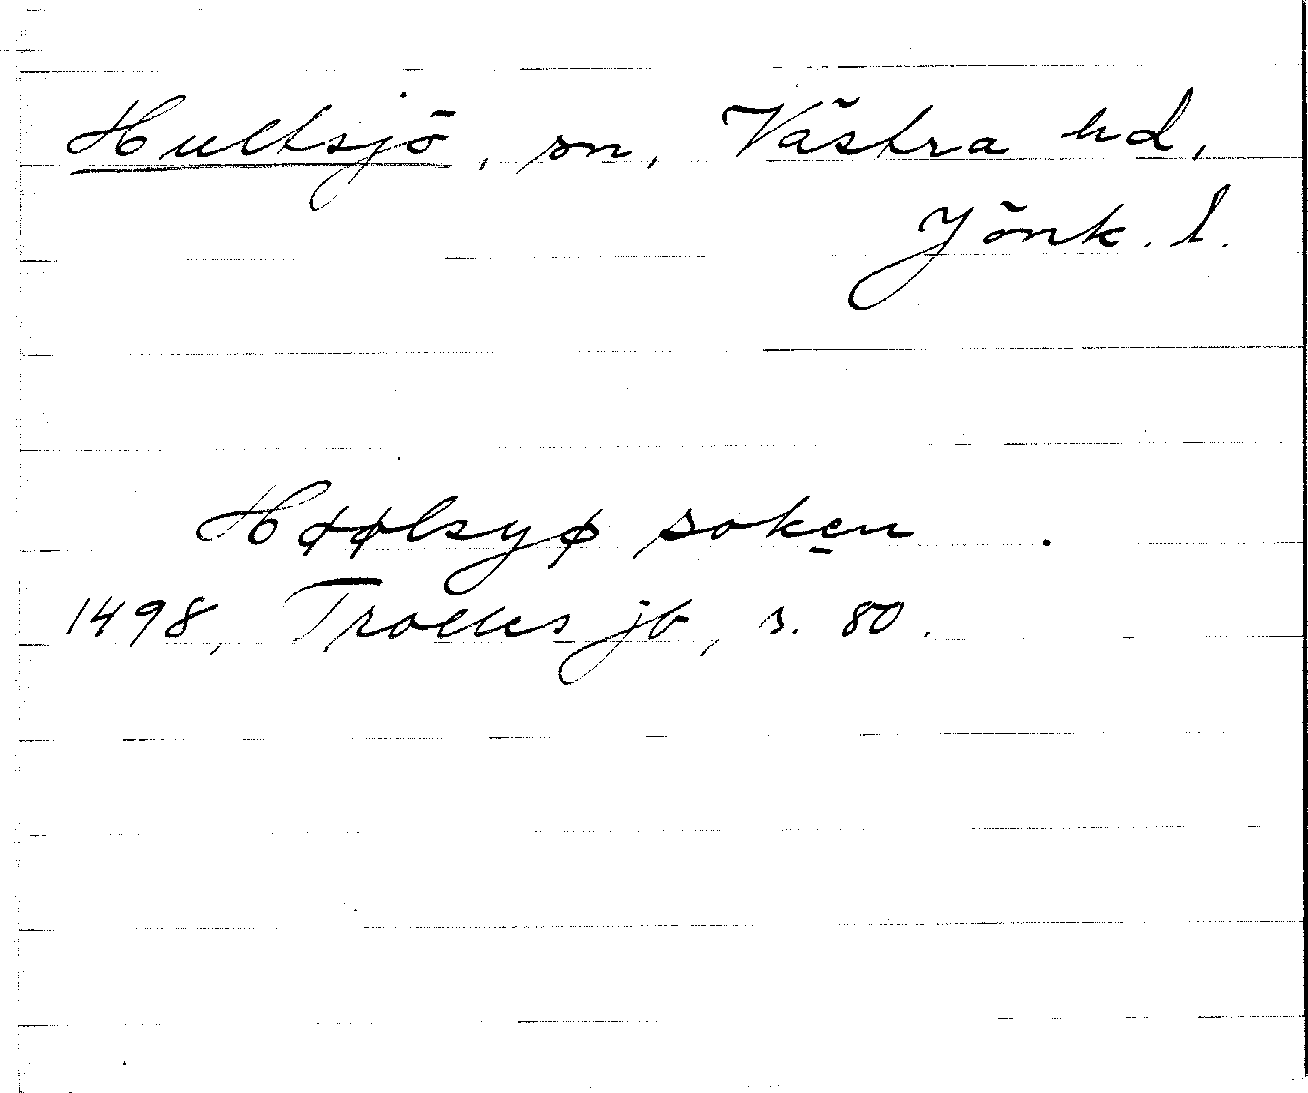 Hultsjö, sn, Västra hd,
Jönk. l.
Høølsyø soken .
1498, Trolles jb, s. 80.